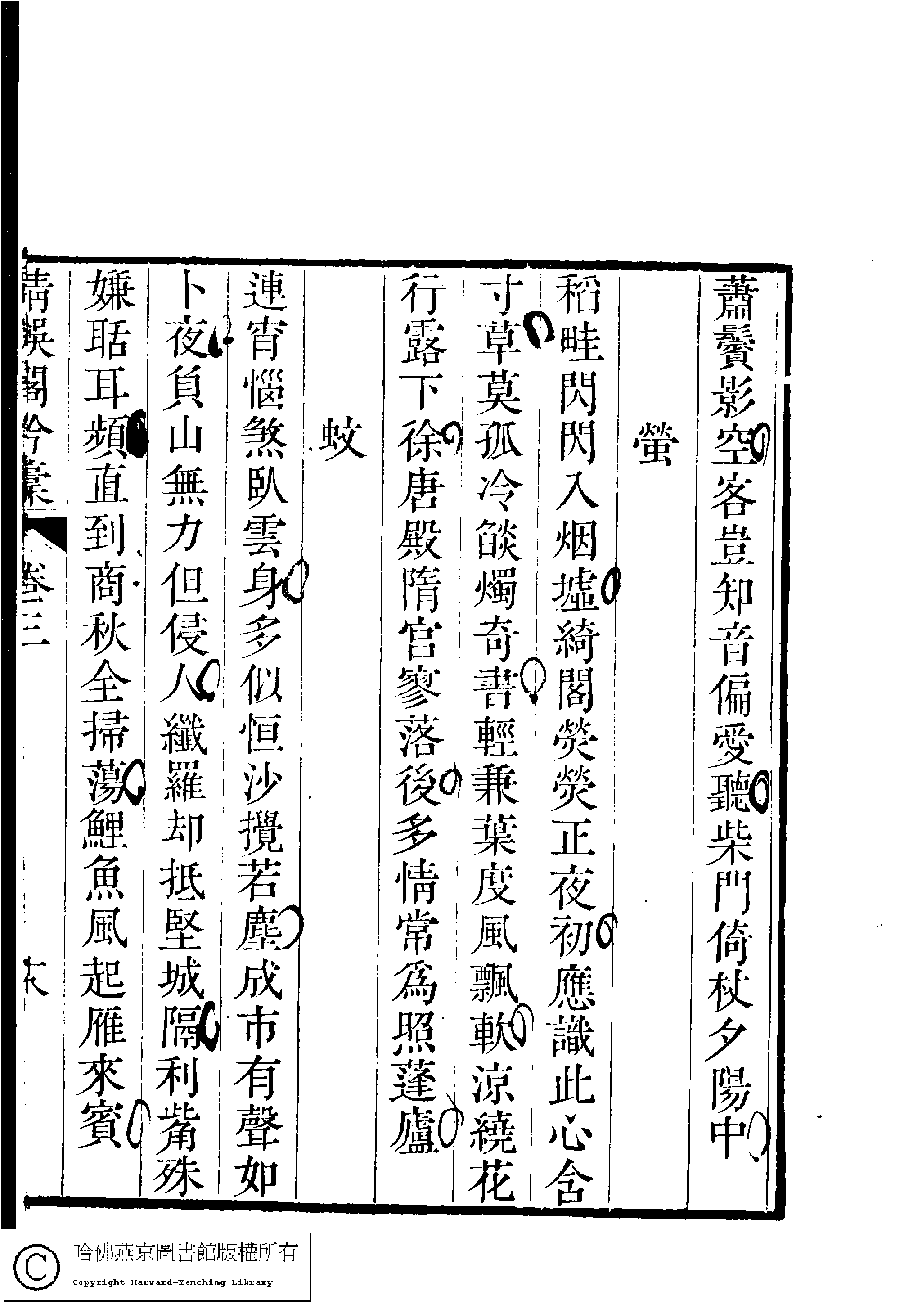 蕭鬢影空客豈知音偏愛聽柴門倚杖夕陽中
螢
稻畦閃閃入烟墟綺閣熒熒正夜初應識此心含
寸草莫孤冷燄燭奇書輕兼葉度風飄軟涼繞花
行露下徐唐殿隋宮寥落後多情常爲照蓬廬
蚊
連宵惱煞臥雲身多似恒沙攪若塵成市有聲如
卜夜負山無力但侵人纖羅却抵堅城隔利觜殊
嫌聒耳頻直到商秋全掃蕩鯉魚風起雁來賓
卷三
哈佛燕京圖書館版權所有
Copyright Harvard-Yenching Library